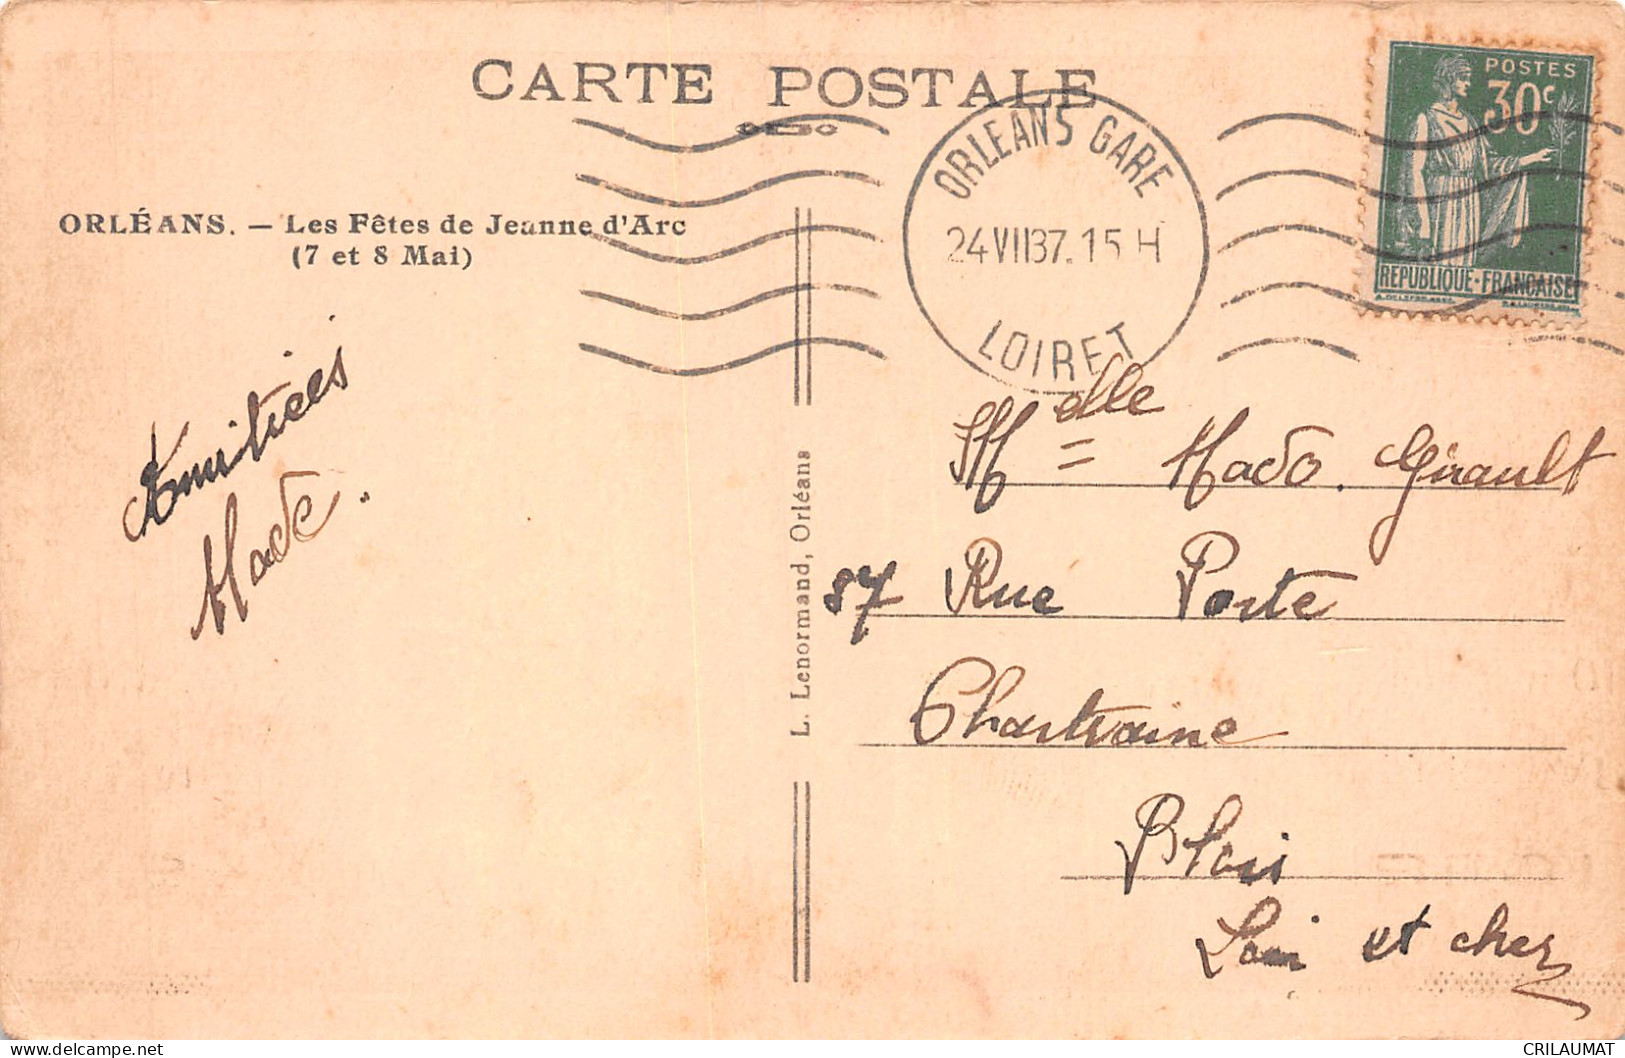 CARTE POSTALE
ORLÉANS. — Les Fêtes de Jeanne d'Arc
(7 et 8 Mai)
Amitiées
Made.
L. Lenormand, Orléans
ORLEANS GARE
24 VII 37. 15 H
LOIRET
POSTES
30c
REPUBLIQUE-FRANCAISE
Melle Mado. Girault
87 Rue Porte
Chartraine
Blois
Loir et cher
CRILAUMAT